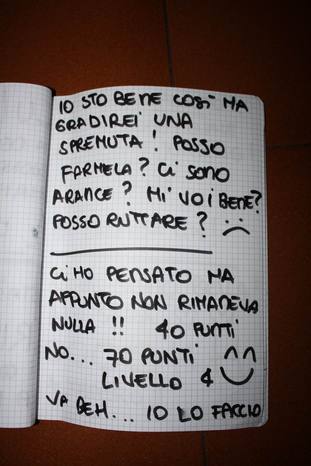 IO STO BENE COSÌ MA
GRADIREI UNA
SPREMUTA! POSSO
FARMELA? CI SONO
ARANCE? MI VOI BENE?
POSSO RUTTARE? :(
CI HO PENSATO MA
APPUNTO NON RIMANEVA
NULLA!! 40 PUNTI
NO... 70 PUNTI ^^
LIVELLO 4
VA BEH... IO LO FACCIO